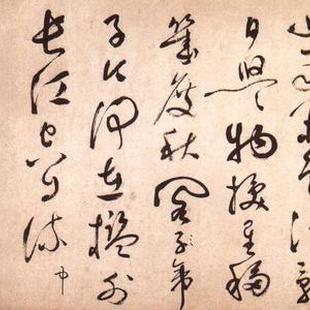 日悠〻物換星移
幾度秋閣帝
子今何在檻外
長江空自流 中